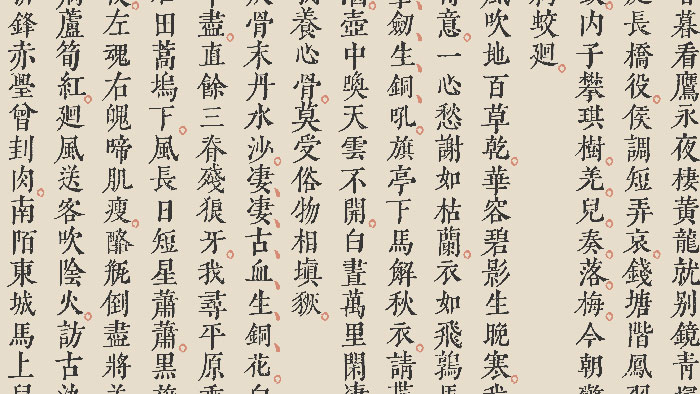 暮看鷹永夜棲黃龍就别鏡青
長橋役侯調短弄哀錢塘階鳳
内子攀琪樹羌兒奏落梅今朝
蛟廻
吹地百草乾華容碧影生晚寒
意一心愁謝如枯蘭衣如飛鶉馬
劒生銅吼旗亭下馬解秋衣請
壺中喚天雲不開白晝萬里閑凄
養心骨莫受俗物相塡豗
骨末丹水沙凄凄古血生銅花白
盡直餘三脊殘狼牙我尋平原
田蒿塢下風長日短星蕭蕭黒
左魂右魄啼肌瘦酪瓶倒盡將
蘆筍紅廻風送客吹陰火訪古
鋒赤璺曾刲肉南陌東城馬上